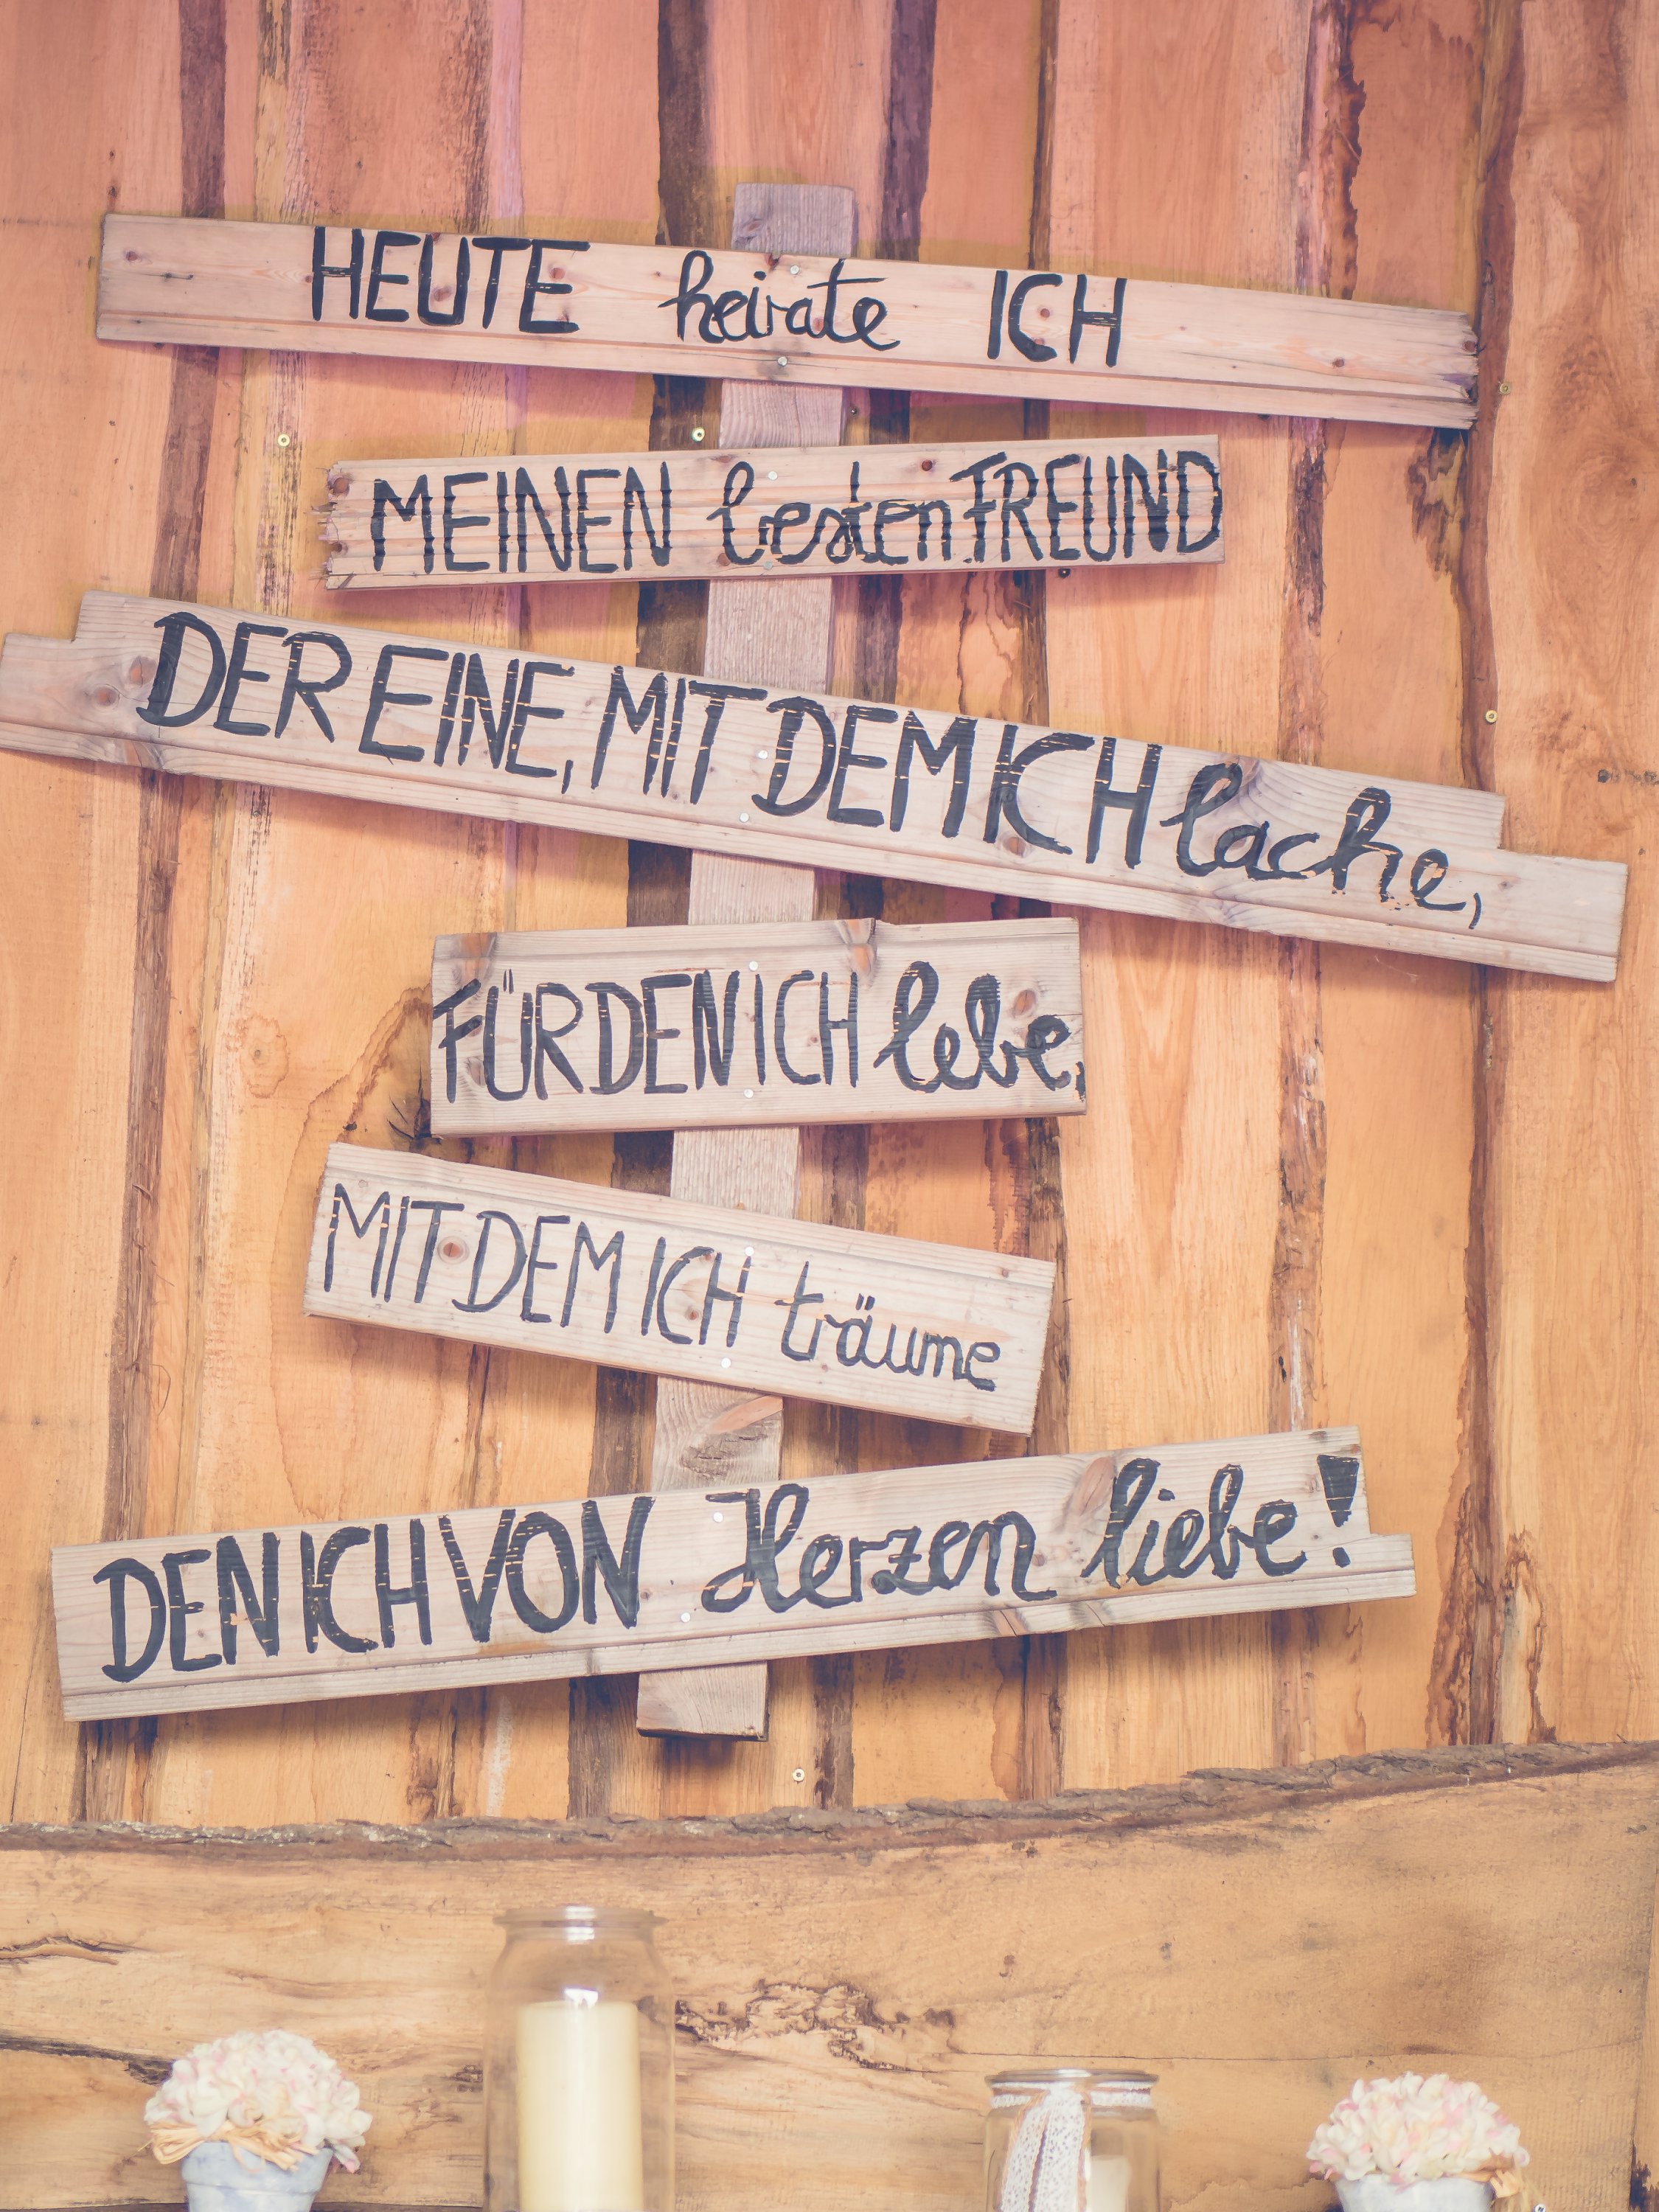 HEUTE heirate ICH
MEINEN besten FREUND
DER EINE, MIT DEM ICH lache,
FÜR DEN ICH lebe,
MIT DEM ICH träume
DEN ICH VON Herzen liebe!